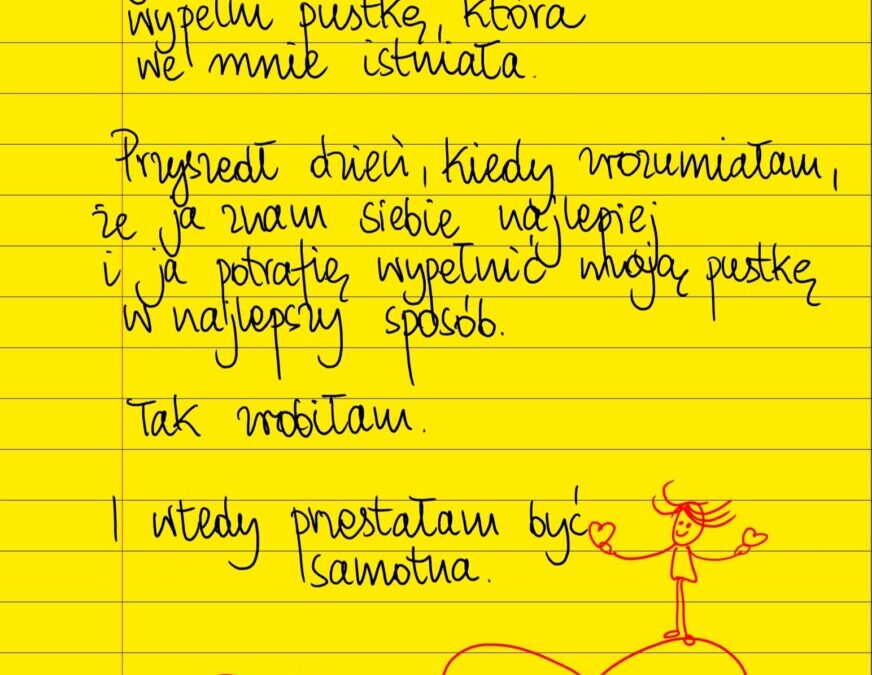 wypełni pustkę, która
we mnie istniała.
Przyszedł dzień, kiedy zrozumiałam,
że ja znam siebie najlepiej
i ja potrafię wypełnić moją pustkę
w najlepszy sposób.
Tak zrobiłam.
I wtedy przestałam być
samotna.